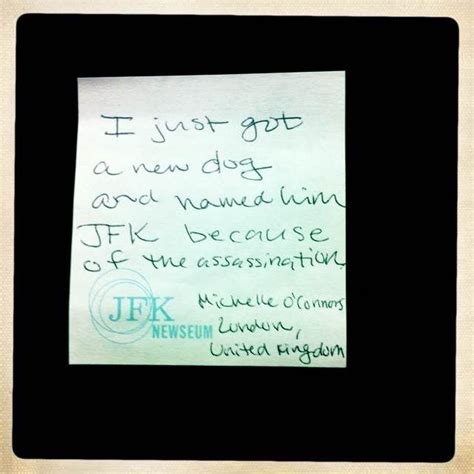 I just got
a new dog
and named him
JFK because
of the assassination.
Michelle O'Connors
London,
United Kingdom
JFK
NEWSEUM